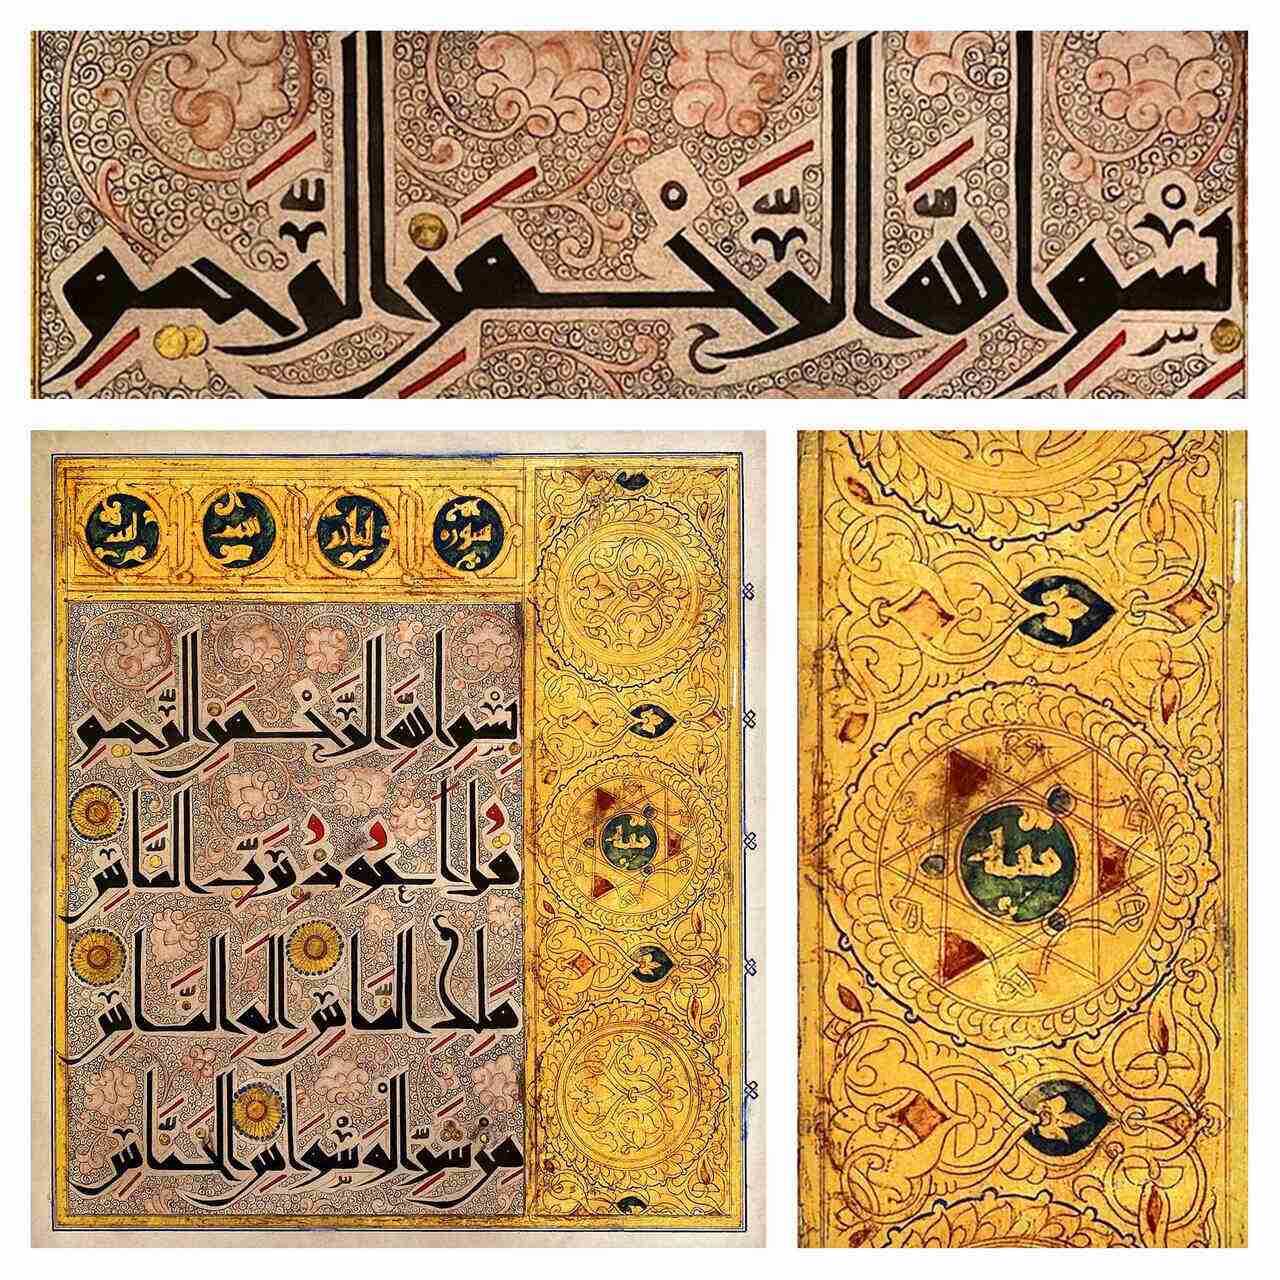 بسم الله الرحمن الرحيم
سوره الناس
بسم الله الرحمن الرحيم
قل اعوذ برب الناس
ملك الناس اله الناس
من شر الوسواس الخناس